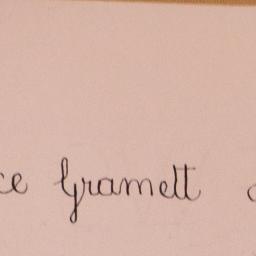 ce Gramett